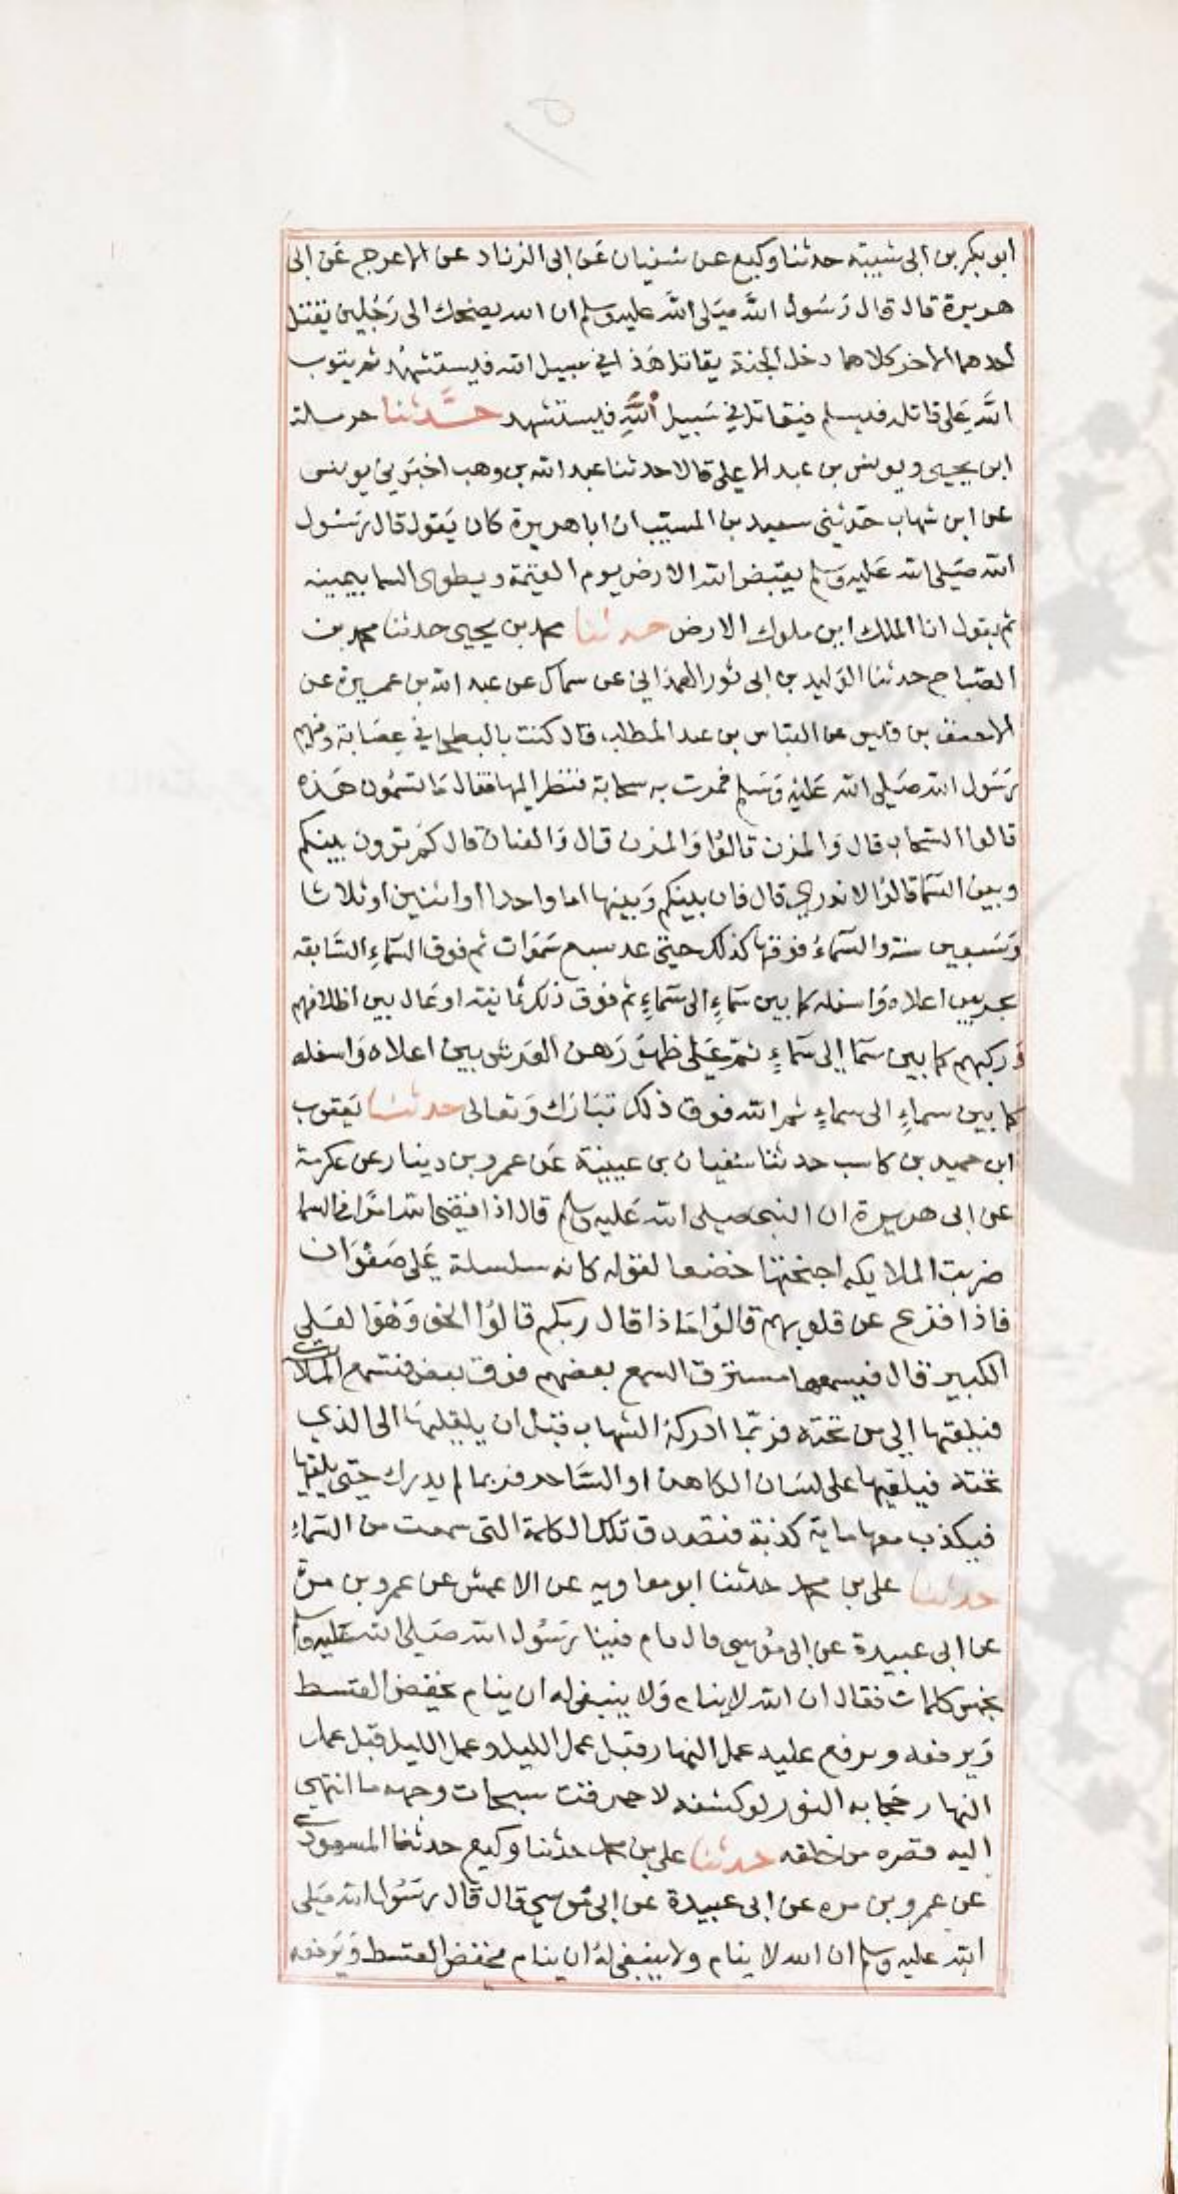 ابو بكر بن ابى شيبة حدثنا وكيع عن سُفيان عَن ابى الزناد عن الاعرج عَن ابى
هريرة قال قال رَسُول اللَّه صَلى اللَّه عليه وسلم ان الله يضحك الى رَجُلين يقتل
احدهما الاخر كلاهما دخل الجنة يقاتل هَذا في سبيل الله فيستشهد ثم يتوب
اللَّه عَلى قاتله فيسلم فيقاتل في سَبيل اللَّهِ فيستشهد حدَّثنا حرملة
ابن يحيى ويونس بن عبد الاعلى قالا حدثنا عبد الله بن وهب اخبَرني يونس
عن ابن شهاب حَدثني سعيد بن المسيب ان ابا هريرة كان يَقول قال رسُول
الله صَلى الله عَليه وسَلم يقبض الله الارض يوم القيمة ويطوى السما بيمينه
ثم يقول انا الملك اين ملوك الارض حدثنا محمد بن يحيى حدثنا محمد بن
الصَّباح حدثنا الوَليد بن ابى ثور الهمذاني عن سماك عن عبد الله بن عميرة عن
الاحنف بن قيس عن العبَّاس بن عبد المطلب قال كنت بالبطحا في عِصَابة وفيهم
رَسَول الله صَلى الله عَليْهِ وَسَلم فمرت به سحابة فنظر اليها فقال مَا تسمُون هَذه
قالوا السَّحاب قال وَالمزن قالوُا وَالمزن قال وَالعنان قال كَم ترون بينكم
وبين السَّمآ قالوُا لا ندري قال فان بينكم وَبينها اما واحدا او اثنين او ثلاثا
وَسَبعين سنة والسَّماءُ فوقها كذلك حتى عد سبع سَمَوات ثم فوق السَّماءِ السَّابعه
بحر بين اعلاه وَاسفله كما بين سَماءٍ الى سَماءٍ ثم فوق ذلك ثمَانية اوعَال بين اظلافهم
وَركبهم كما بين سَمآ الى سَماءٍ ثمّ عَلى ظهُورهن العَرش بين اعلاه وَاسفله
كما بين سماءٍ الى سماءٍ ثم الله فوق ذلك تبَارَك وَتعالى حدثنا يَعقوب
ابن حميد بن كاسب حدثنا سُفيان بن عيينة عَن عمرو بن دينار عن عكرمة
عن ابى هريرة ان النبى صلى الله عَليه وسَلم قال اذا قضى الله امرًا في السما
ضربت الملايكه اجنحتها خضعا لقوله كانه سلسلة عَلى صَفوَان
فاذا فزع عن قلوبهم قالوُا مَاذا قال ربكم قالوُا الحق وَهُوَ العَلي
الكبير قال فيسمعها مسترق السمع بعضهم فوق بعض فتسمع الكلمة
فيلقيها الى من تحته فربّما ادركهُ الشهاب قبل ان يلقيها الى الذي
تحته فيلقيها على لسَان الكاهن او السَّاحر فربما لم يدرك حتى يلقيها
فيكذب معها ماية كذبة فتصدق تلك الكلمة التى سمعت من السَّماءِ
حدثنا على بن محمد حدثنا ابو معاويه عن الاعمش عن عمرو بن مرة
عن ابى عبيدة عن ابى مُوسى قال قام فينا رسُول الله صَلى الله عَليه وسلم
بخمس كلمات فقال ان الله لا ينام وَلا ينبغى له ان ينام يخفض القسط
وَيرفعه ويرفع عليه عمل النهار قبل عمل الليل وعمل الليل قبل عمل
النهار حجابه النور لو كشفه لاحرقت سبحات وجهه ما انتهى
اليه بصره من خلقه حدثنا على بن محمد حدثنا وكيع حدثنا المسعودى
عن عمرو بن مره عن ابى عبيدة عن ابى مُوسى قال قال رسَوُل الله صَلى
الله عليه وسلم ان الله لا ينام ولا ينبغى لهُ ان ينام يخفض القسط وَيَرفعه